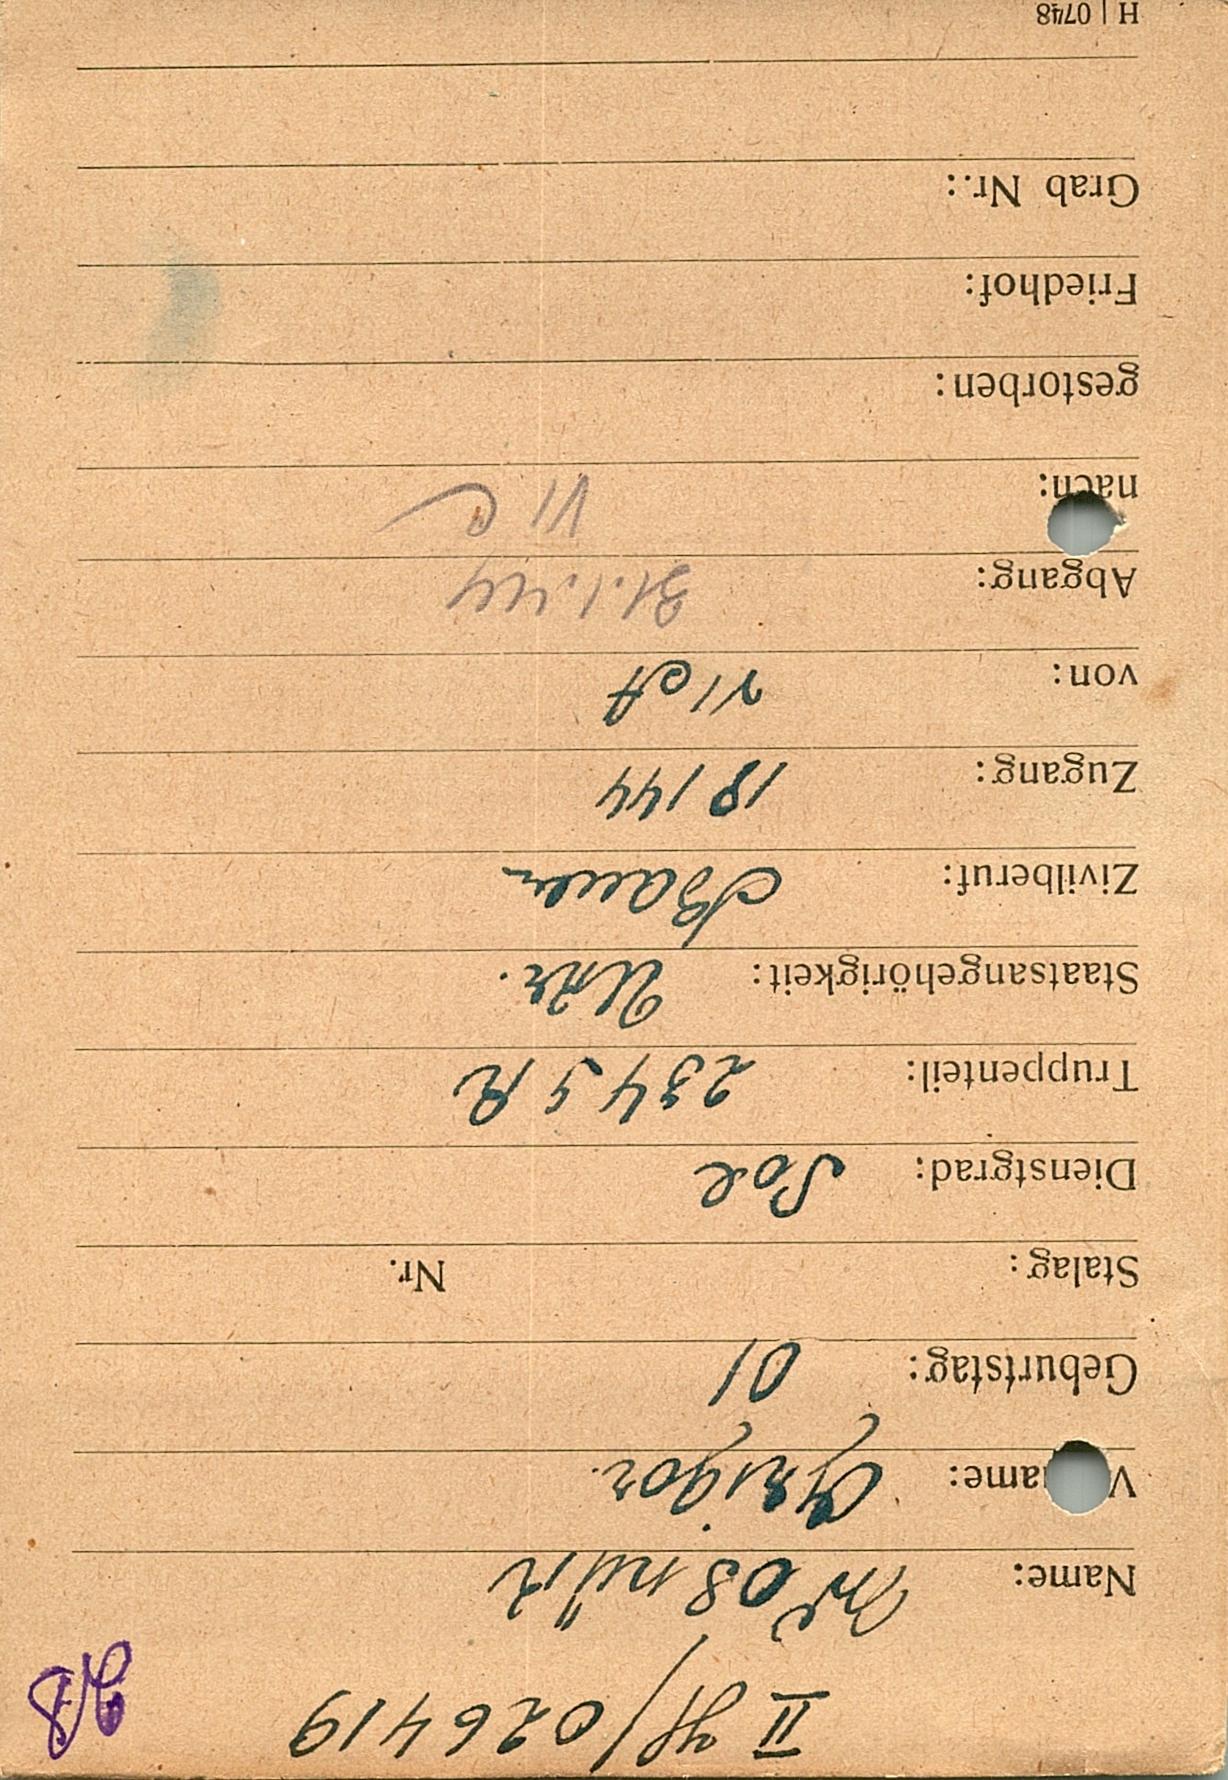 II H/026419
Name:
Vname: Grigor.
Geburtstag: 01
Stalag: Nr.
Dienstgrad: Sol
Truppenteil: 234 S R
Staatsangehörigkeit: Ukr.
Zivilberuf: Bauer
Zugang: 18 1 44
von: VI A
Abgang: 31.1.44
nach: VI C
gestorben:
Friedhof:
Grab Nr.:
H | 0748